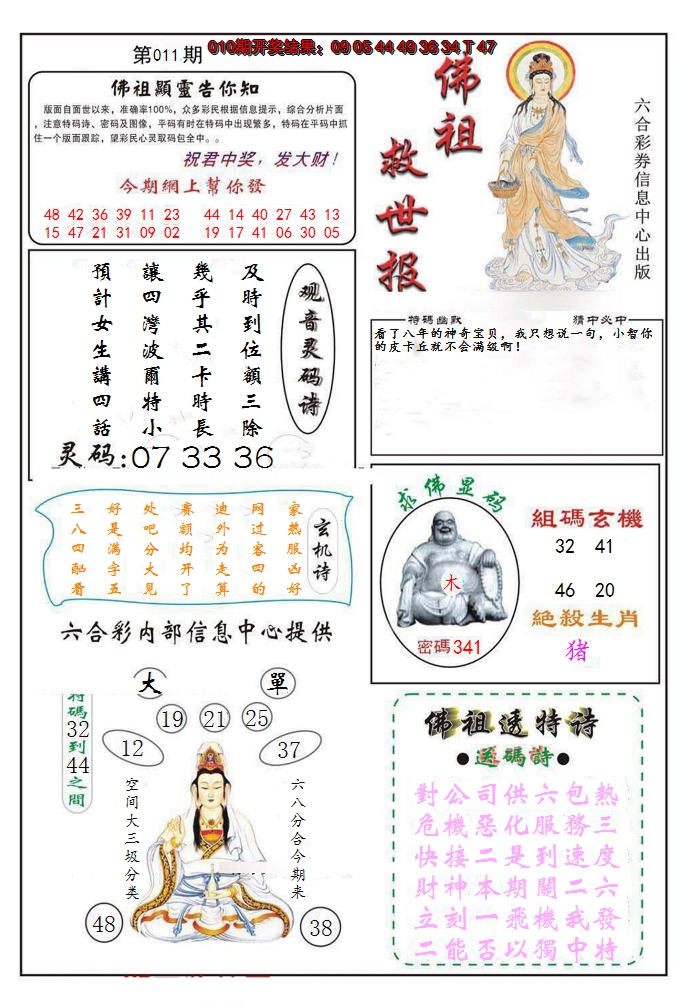 第011期
010期开奖结果：09 05 44 49 36 34 T 47
佛祖顯靈告你知
版面自面世以来，准确率100%，众多彩民根据信息提示，综合分析片面
，注意特码诗、密码及图像，平码有时在特码中出现繁多，特码在平码中抓
住一个版面跟踪，望彩民心灵取码包全中。。
祝君中奖，发大财！
今期網上幫你發
48 42 36 39 11 23 44 14 40 27 43 13
15 47 21 31 09 02 19 17 41 06 30 05
佛祖
救世报
六合彩券信息中心出版
观音灵码诗
及時到位額三除
幾乎其二卡時長
讓四灣波爾特小
預計女生講四話
灵码:07 33 36
特碼幽默
猜中必中
看了八年的神奇宝贝，我只想说一句，小智你
的皮卡丘就不会满级啊！
玄机诗
家热服凶好
网过客四的
迪外为走算
赛额均开了
处吧分大见
好是满字五
三八四酩看
六合彩内部信息中心提供
求佛显码
木
密碼341
組碼玄機
32 41
46 20
絶殺生肖
猪
大
單
特碼32到44之間
19 21 25
12
37
空间大三圾分类
六八分合今期来
48
38
佛祖透特诗
●送碼詩●
對公司供六包熱
危機惡化服務三
快接二是到速度
財神本期開二六
立刻一飛機我發
二能否以獨中特